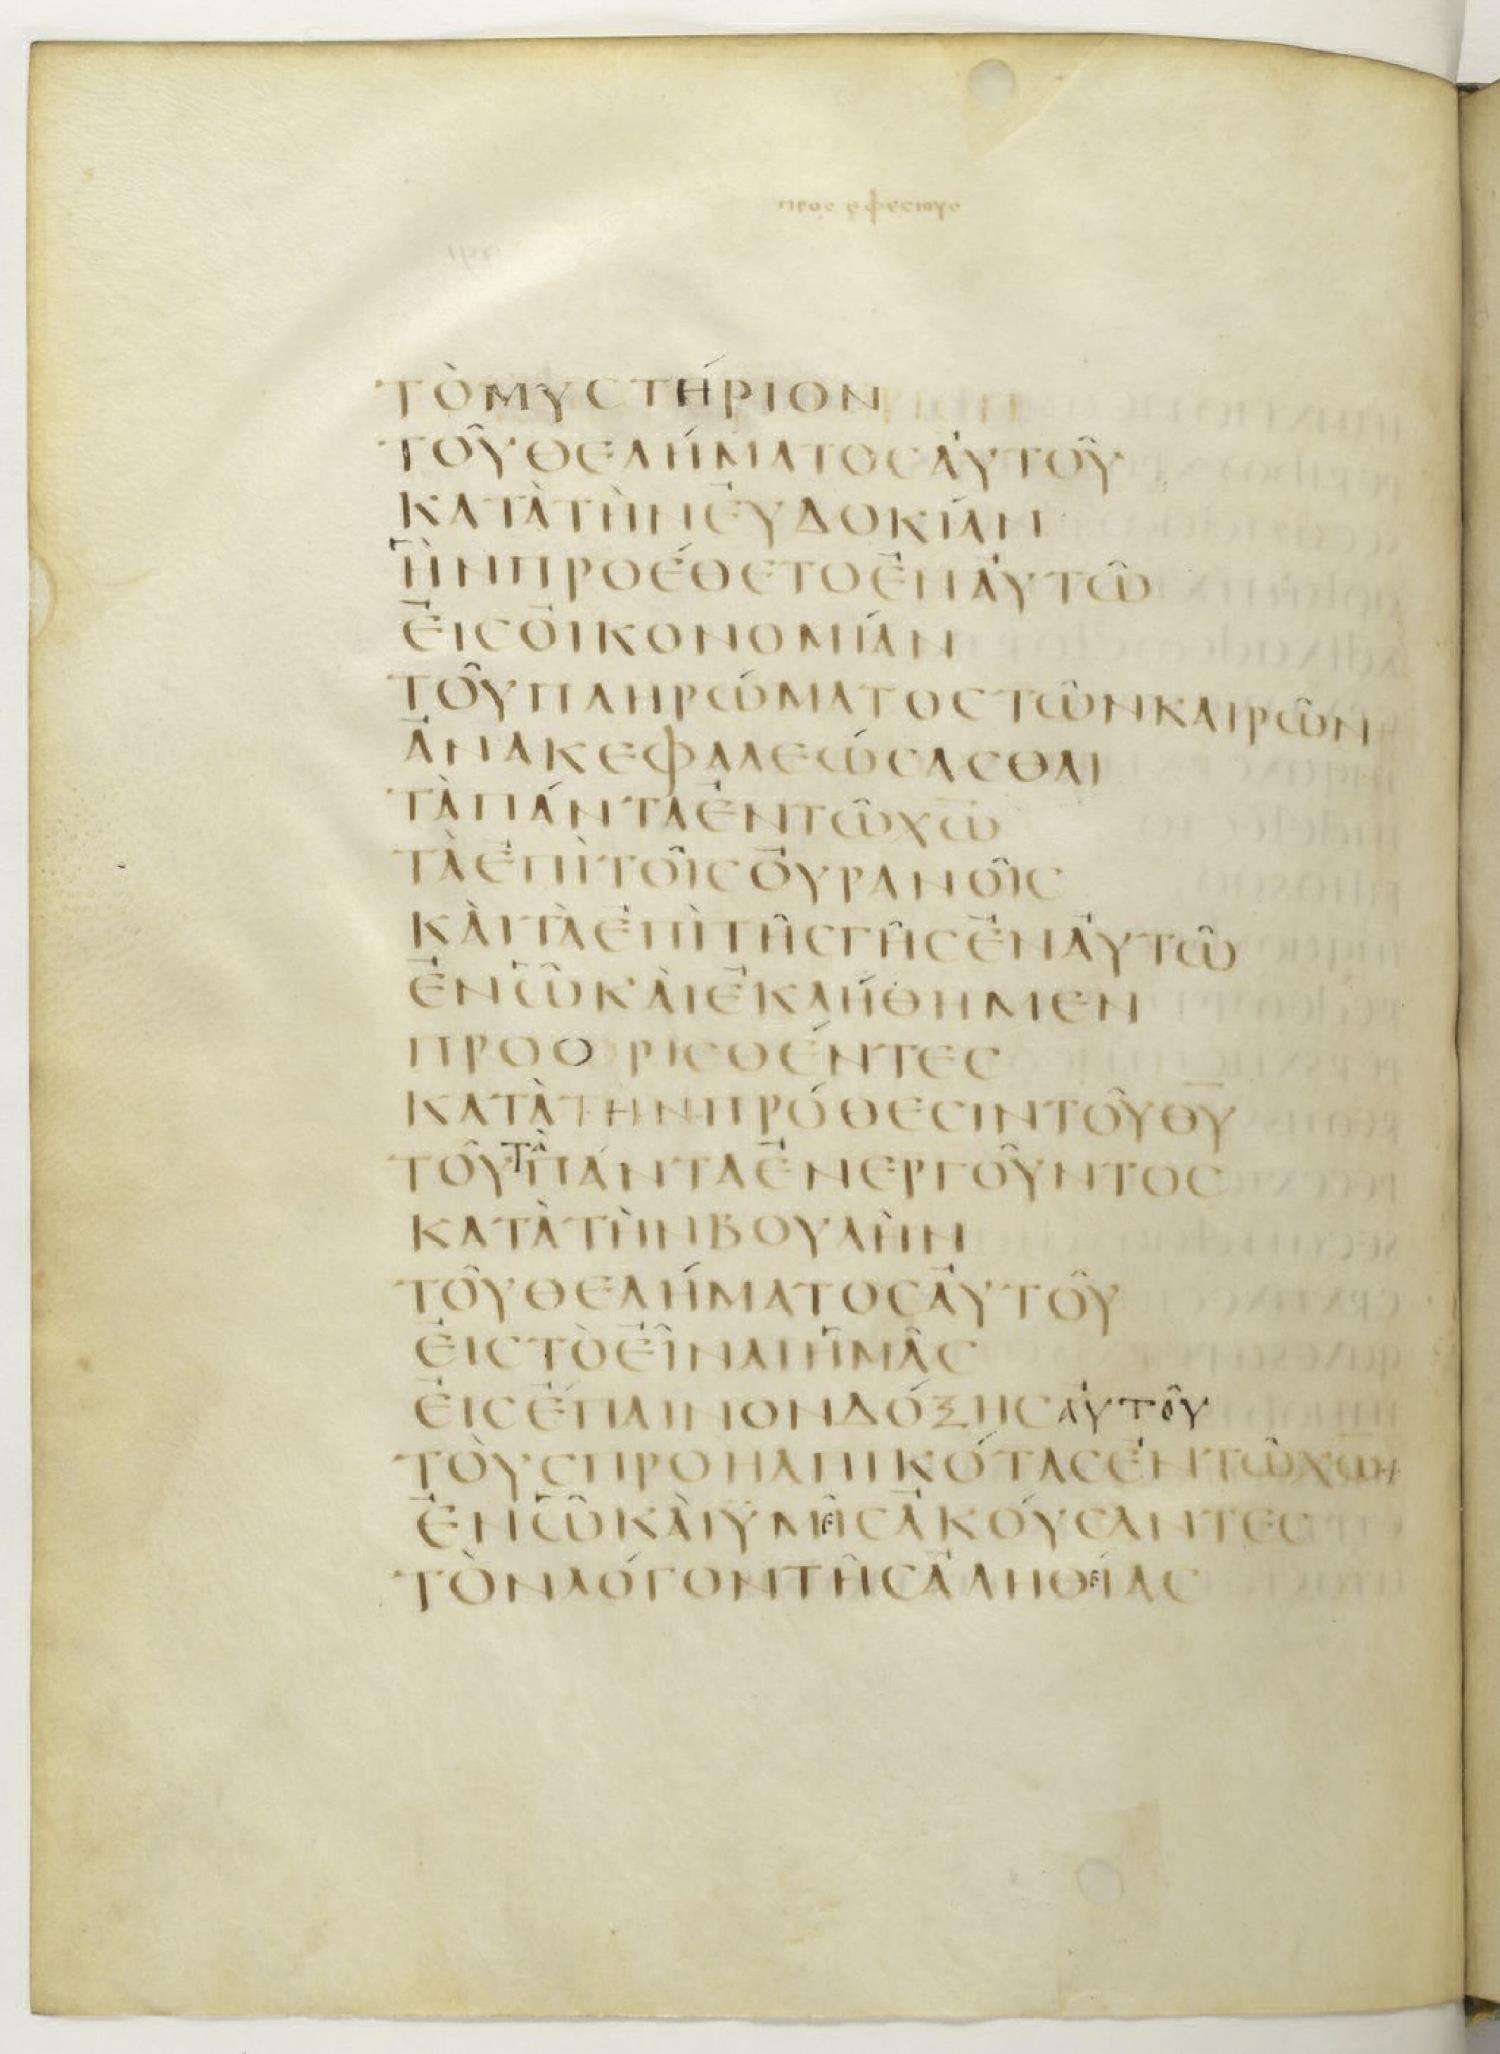 προς εφεσιους
ΤῸΜΥϹΤΉΡΙΟΝ
ΤΟΥ͂ΘΕΛΉΜΑΤΟϹἈΥΤΟΥ͂
ΚΑΤᾺΤῊΝἘΥΔΟΚΊΑΝ
ἫΝΠΡΟΈΘΕΤΟἘΝἈΥΤΩ͂
ἘΙϹὈΙΚΟΝΟΜΊΑΝ
ΤΟΥ͂ΠΛΗΡΏΜΑΤΟϹΤΩ͂ΝΚΑΙΡΩ͂Ν
ἈΝΑΚΕΦΑΛΕΏϹΑϹΘΑΙ
ΤᾺΠΆΝΤΑἘΝΤΩ͂Χ̅Ω̅
ΤᾺἘΠῚΤΟΙ͂ϹὈΥΡΑΝΟΙ͂Ϲ
ΚᾺΙΤᾺἘΠῚΤΗ͂ϹΓΗ͂ϹἘΝἈΥΤΩ͂
ἘΝὯΚᾺΙἘΚΛΉΘΗΜΕΝ
ΠΡΟΟΡΙϹΘΈΝΤΕϹ
ΚΑΤᾺΤΗΝΠΡΌΘΕϹΙΝΤΟΥ͂Θ̅Υ̅
ΤΟΥ͂ΤᾺΠΆΝΤΑἘΝΕΡΓΟΥ͂ΝΤΟϹ
ΚΑΤᾺΤῊΝΒΟΥΛῊΝ
ΤΟΥ͂ΘΕΛΉΜΑΤΟϹἈΥΤΟΥ͂
ἘΙϹΤῸἘΙ͂ΝΑΙἩΜΑ͂Ϲ
ἘΙϹἜΠΑΙΝΟΝΔΌΞΗϹἀυτοῦ
ΤΟῪϹΠΡΟΗΛΠΙΚΌΤΑϹἘΝΤΩ͂Χ̅Ω̅
ἘΝὯΚᾺΙΫΜΕΙ͂ϹἈΚΟΎϹΑΝΤΕϹ
ΤῸΝΛΌΓΟΝΤΗ͂ϹἈΛΗΘΕΊΑϹ